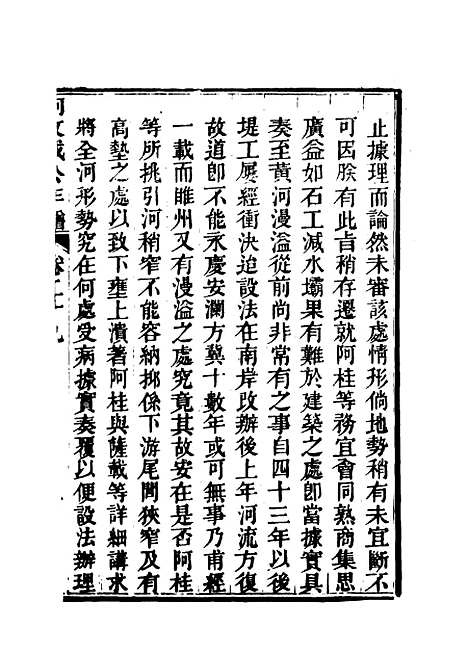 止據理而論然未審該處情形倘地勢稍有未宜斷不
可因朕有此旨稍存遷就阿桂等務宜會同熟商集思
廣益如石工減水壩果有難於建築之處卽當據實具
奏至黃河漫溢從前尚非常有之事自四十三年以後
堤工屢經衝決迨設法在南岸改辦後上年河流方復
故道卽不能永慶安瀾方冀十數年或可無事乃甫經
一載而睢州又有漫溢之處究竟其故安在是否阿桂
等所挑引河稍窄不能容納抑係下游尾閭狹窄及有
高墊之處以致下壅上潰著阿桂與薩載等詳細講求
將全河形勢究在何處受病據實奏覆以便設法辦理
阿文成公年譜 卷二十九